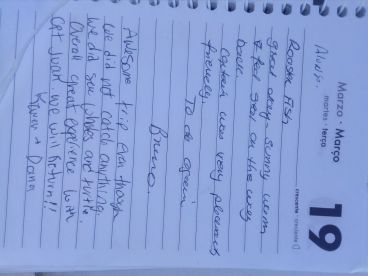 Marzo · Março
martes · terça
19
Rooster Fish
Great day - sunny warm
& feed seal on the way
Back.
Captain was very pleasant
friendly.
To do again
Bruno.
Awesome trip even though
we did not catch anything.
We did see whales and turtle.
Overall great experience with
Cpt Juan. we will Return!!
+ Dana